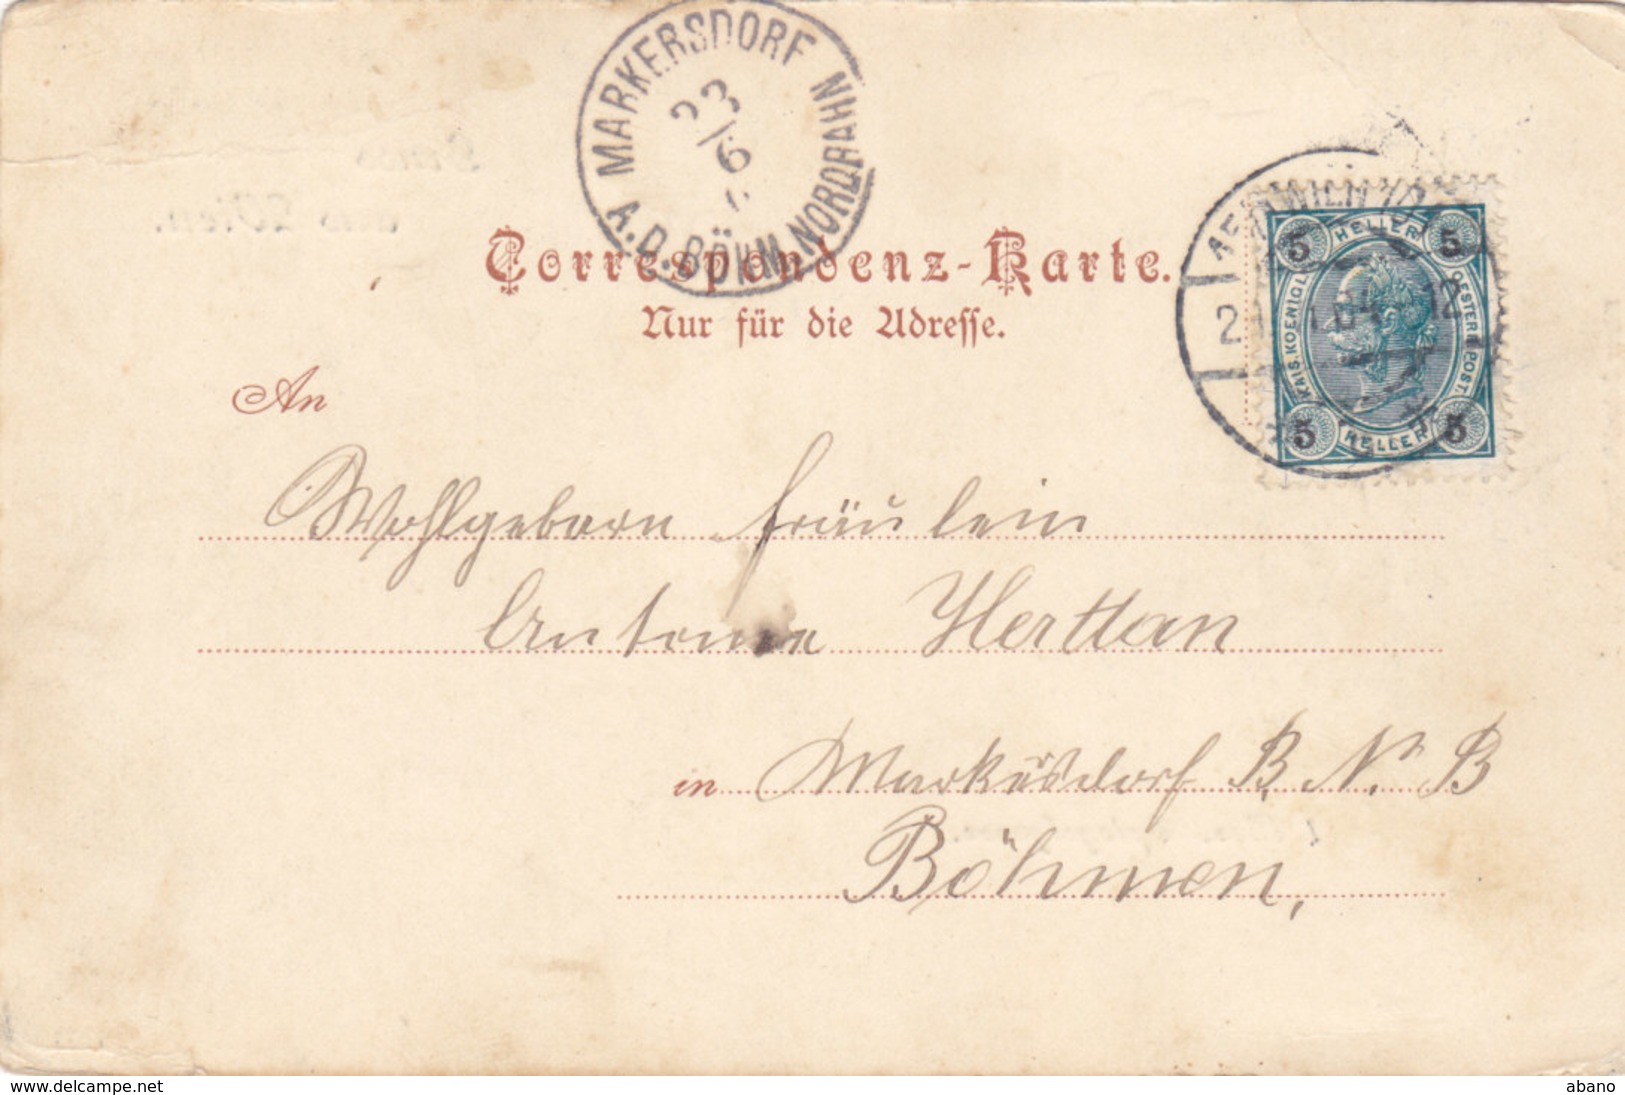 MARKERSDORF A.D. BÖHM. NORDBAHN
23/6
Correspondenz-Karte.
Nur für die Adresse.
WIEN
04
12
5 HELLER 5
KAIS. KOENIGL.
OESTERR. POST.
5 HELLER 5
An
Wohlgeborn Fräulein
Antonie Herttan
in Markersdorf B. N. B
Böhmen,
aus Wien.
www.delcampe.net
abano